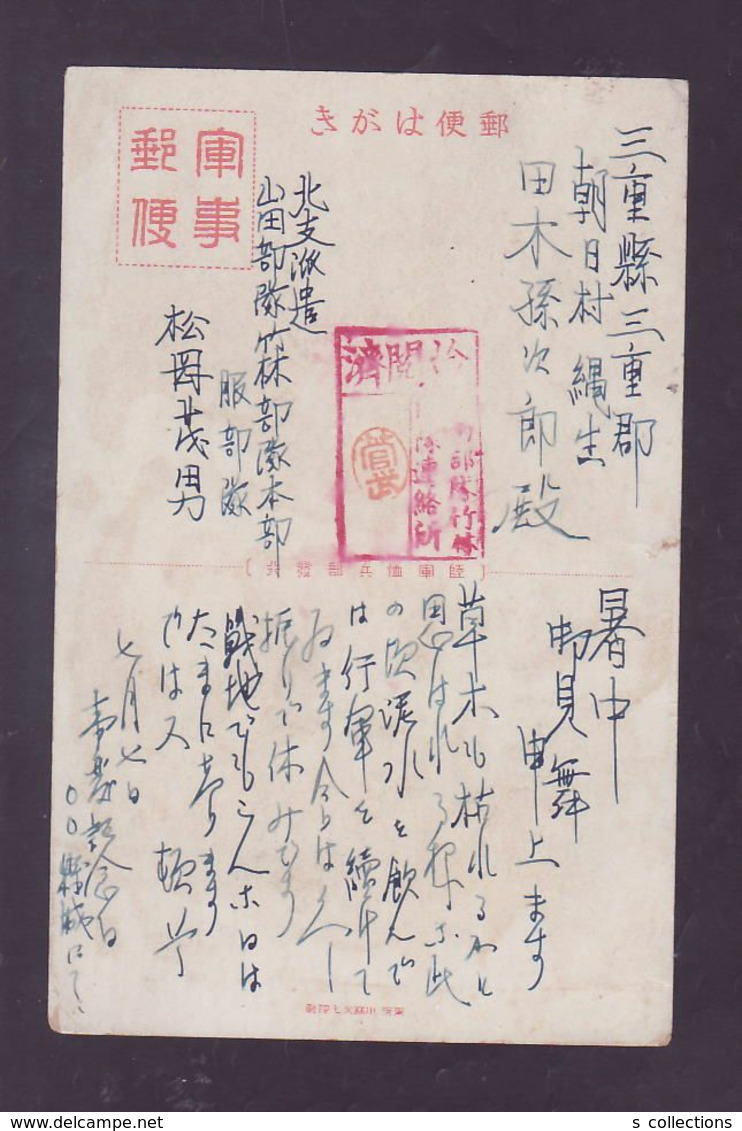 郵便はがき
軍事
郵便
三重縣三重郡
朝日村 縄生
田木孫次郎殿
北支派遣
山田部隊竹林部隊本部
服部隊
松岡茂男
検閲濟
部隊竹林
隊連絡所
陸軍恤兵部發行
暑中
御見舞
申上ます
草木も枯れるかと
思はれる様な此
の頃泥水を飲んで
は行軍を続けて
ゐます 今日は久し
振りで休みます
戦地でもこんな日は
たまにあります
では又 頓首
七月七日
事変記念日
〇〇縣城にて
s collections